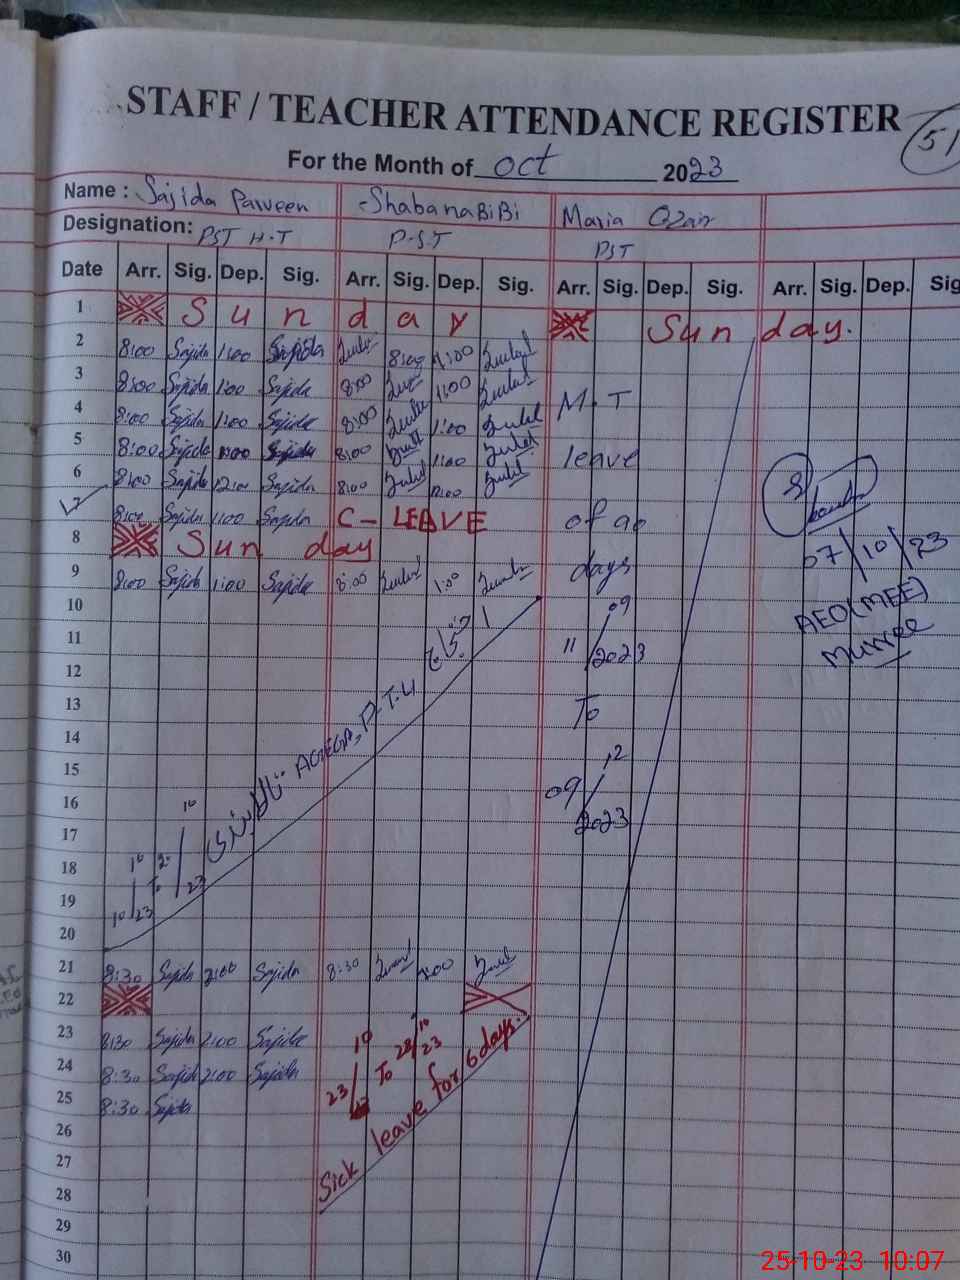 STAFF / TEACHER ATTENDANCE REGISTER
51
For the Month of Oct 2023
Name : Sajida Parveen ShabanaBiBi Maria
Designation: PST H.T P.S.T PST
Date Arr. Sig. Dep. Sig. Arr. Sig. Dep. Sig. Arr. Sig. Dep. Sig. Arr. Sig. Dep. Sig
1 Sunday Sunday.
2 8:00 Sajida 1:00 Sajida 8:00 1:00
3 8:00 Sajida 1:00 Sajida 8:00 1:00
4 8:00 Sajida 1:00 Sajida 8:00 1:00 M.T
5 8:00 Sajida 1:00 Sajida 8:00 1:00 leave
6 8:00 Sajida 12:00 Sajida 8:00 12:00
7 8:00 Sajida 1:00 Sajida C-LEAVE of 90
8 Sunday
07/10/23
9 8:00 Sajida 1:00 Sajida 8:00 1:00 days
AEO(MEE)
Murree
10
11 11/09/2023
12
13 To
14
15
16 09/12/2023
17
ACTEGA, P.T.U
18 10/10/23 To 20/10/23
19
20
21 8:30 Sajida 2:00 Sajida 8:30 2:00
22
23 8:30 Sajida 2:00 Sajida
24 8:30 Sajida 2:00 Sajida
25 8:30 Sajida
23/10 To 28/10/23
Sick leave for 6 days.
26
27
28
29
30
25-10-23 10:07